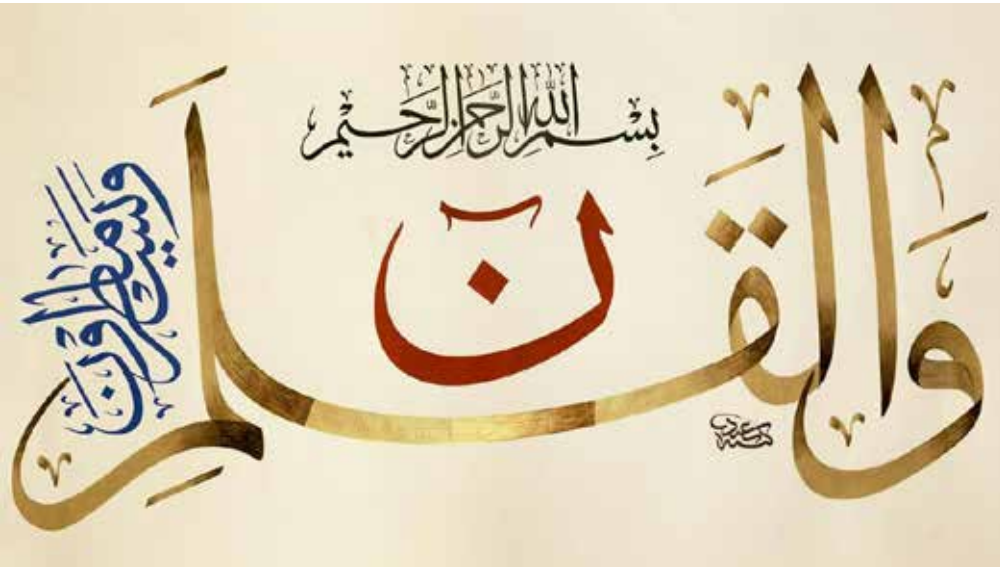 بِسْمِ اللهِ الرَّحْمٰنِ الرَّحِيْمِ
نۤ
وَالْقَلَمِ
وَمَا يَسْطُرُونَ